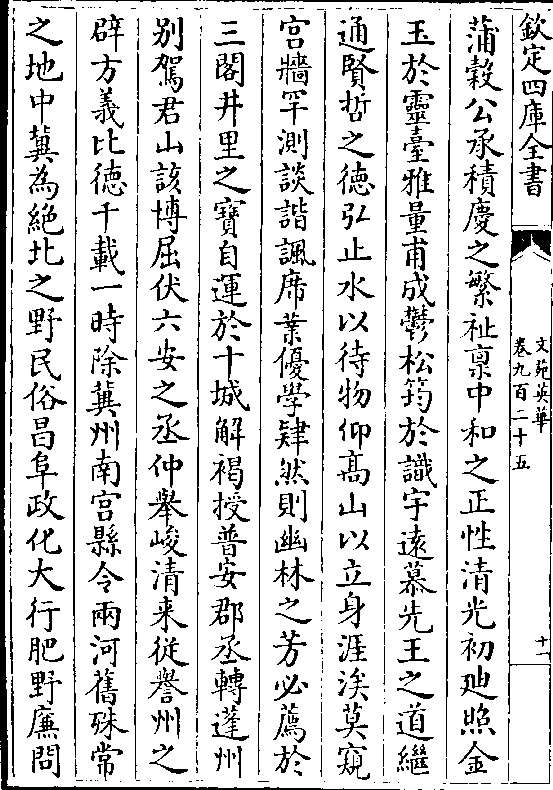 欽定四庫全書
文苑英華
卷九百二十五
十一
蒲穀公承積慶之繁祉禀中和之正性清光初廸照金
玉於靈臺雅量甫成鬱松筠於識宇遠慕先王之道繼
通賢哲之德弘止水以待物仰髙山以立身涯涘莫窺
宫牆罕測談諧諷席業優學肆然則幽林之芳必薦於
三閣井里之寶自運於十城解褐授普安郡丞轉蓬州
别駕君山該博屈伏六安之丞仲舉峻清来從譽州之
辟方義比徳千載一時除冀州南宫縣令兩河舊殊常
之地中冀為絶北之野民俗昌阜政化大行肥野廉問